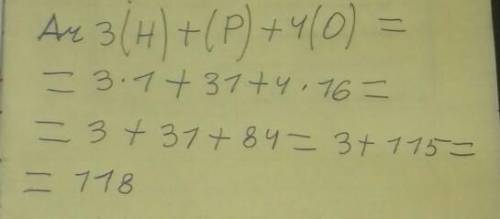 Ar 3(H)+(P)+4(O) =
= 3·1+31+4·16=
= 3+31+84= 3+115=
= 118